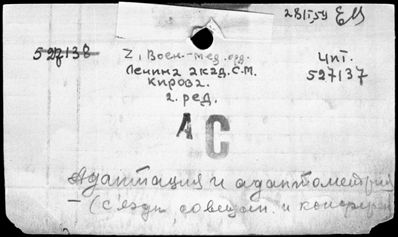 28II,59 ЕМ
527138
Z, Воен.-Мед. орд.
Ленина акад. С.М.
Кирова.
2. ред.
Чит.
527137
А С
Адаптация и адаптометрия
- (съезды, совещан. и конферен